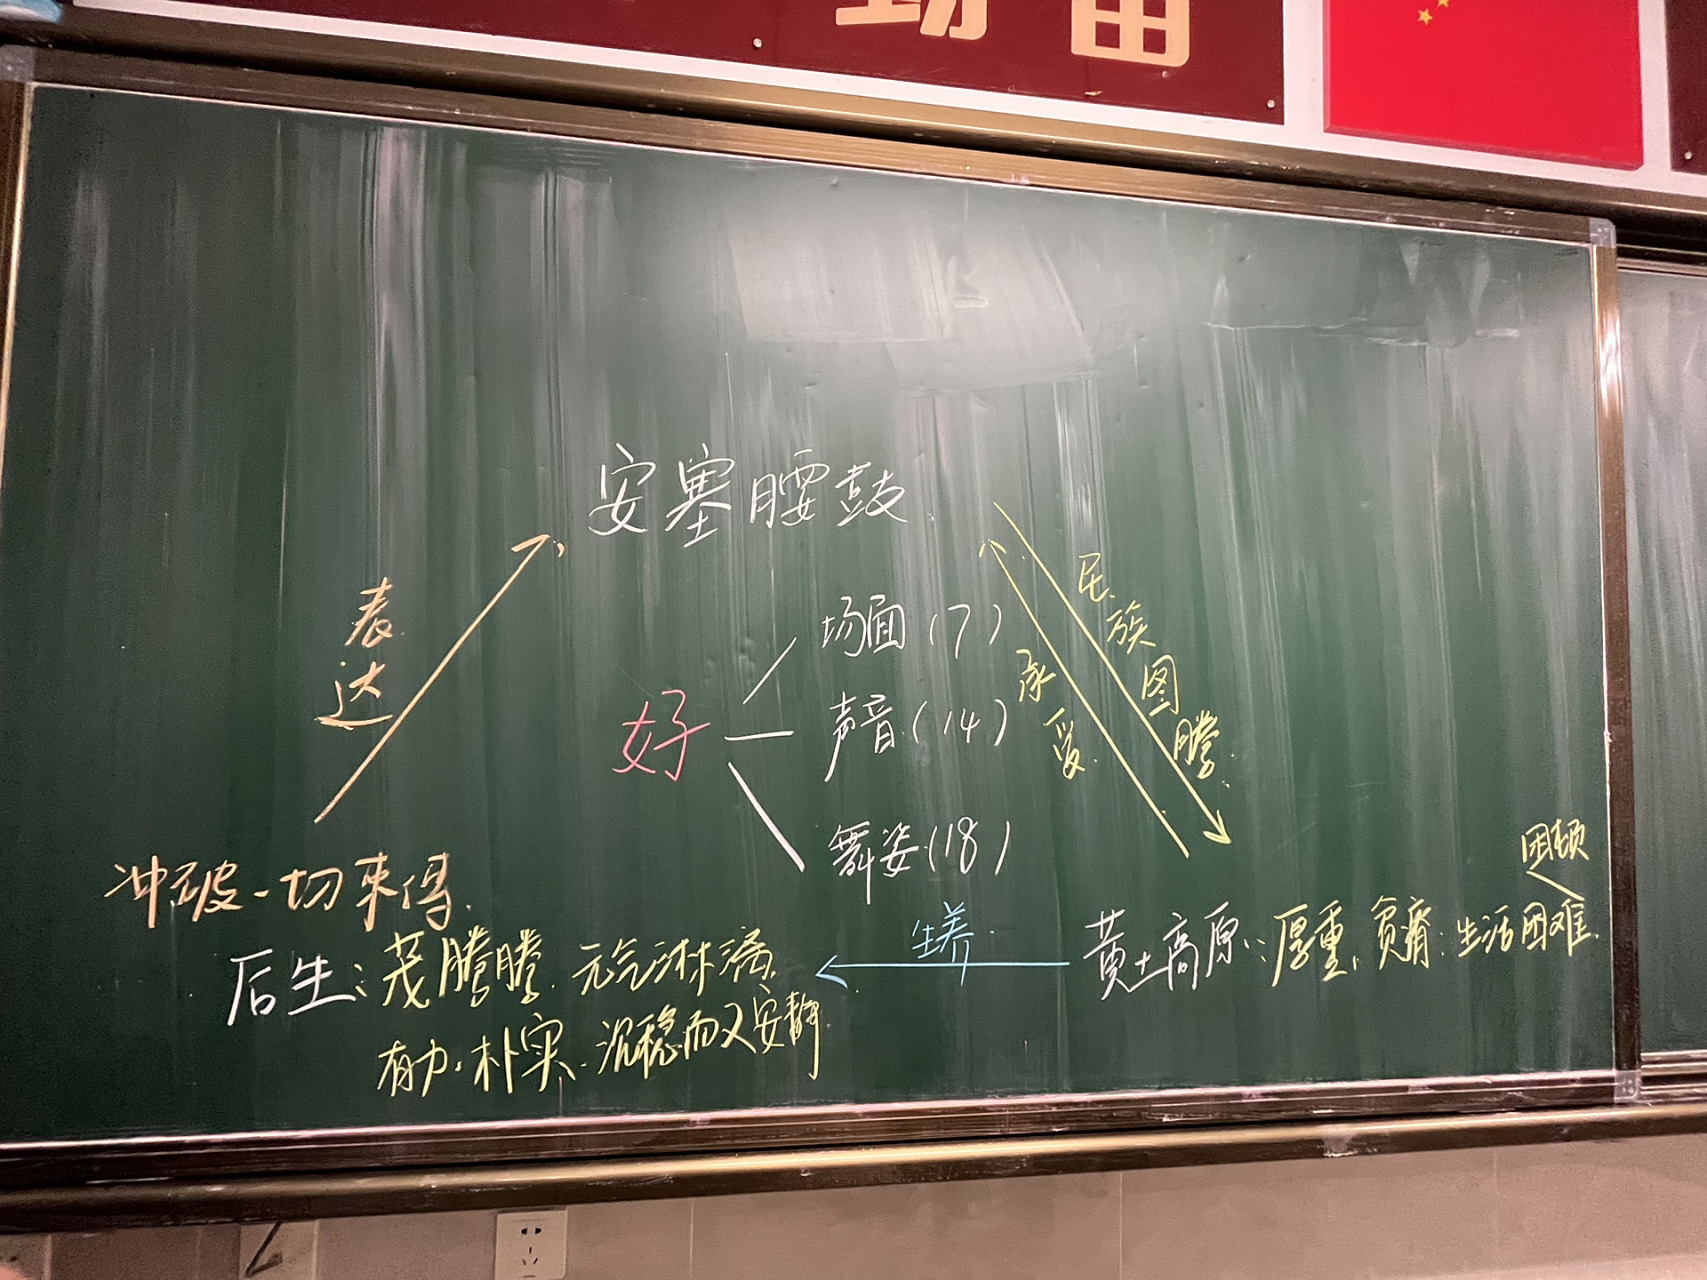 安塞腰鼓
表达
民族图腾
承受
场面（7）
好
声音（14）
舞姿（18）
困顿
冲破一切来得
生养
黄土高原：厚重、贫瘠、生活困难
后生：茂腾腾、元气淋漓
有力、朴实、沉稳而又安静